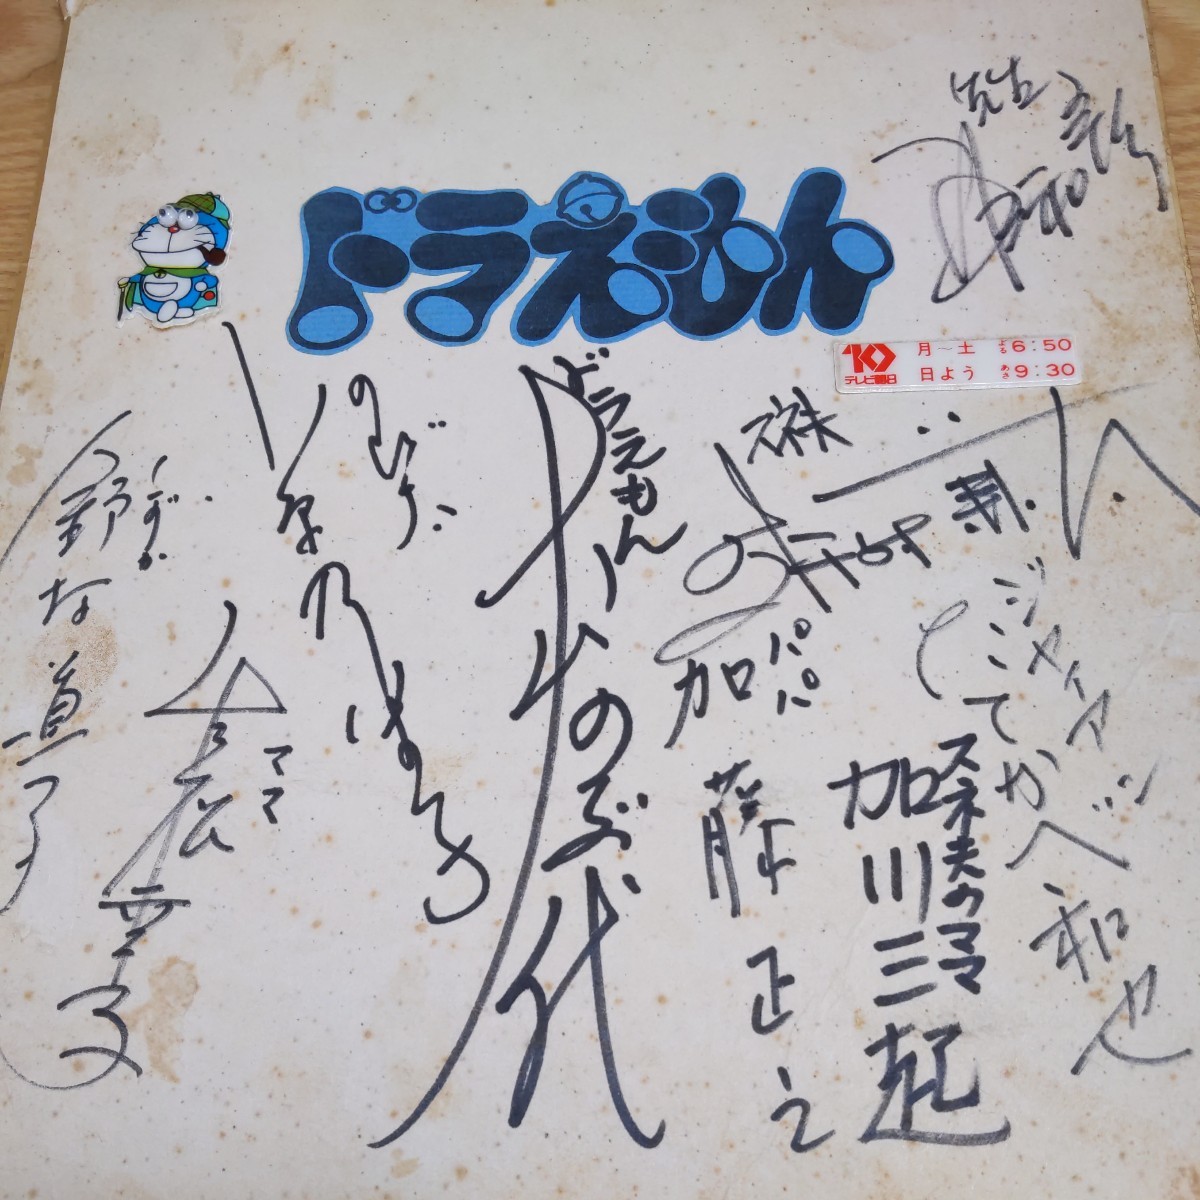 先生
ドラえもん
10
テレビ朝日
月〜土 よる6:50
日よう あさ9:30
ジャイアン
たてかべ和也
スネ夫のママ
加川三起
パパ
加藤正之
ドラえもん
大山のぶ代
のび太
小原乃梨子
ママ
しずか
野村道子